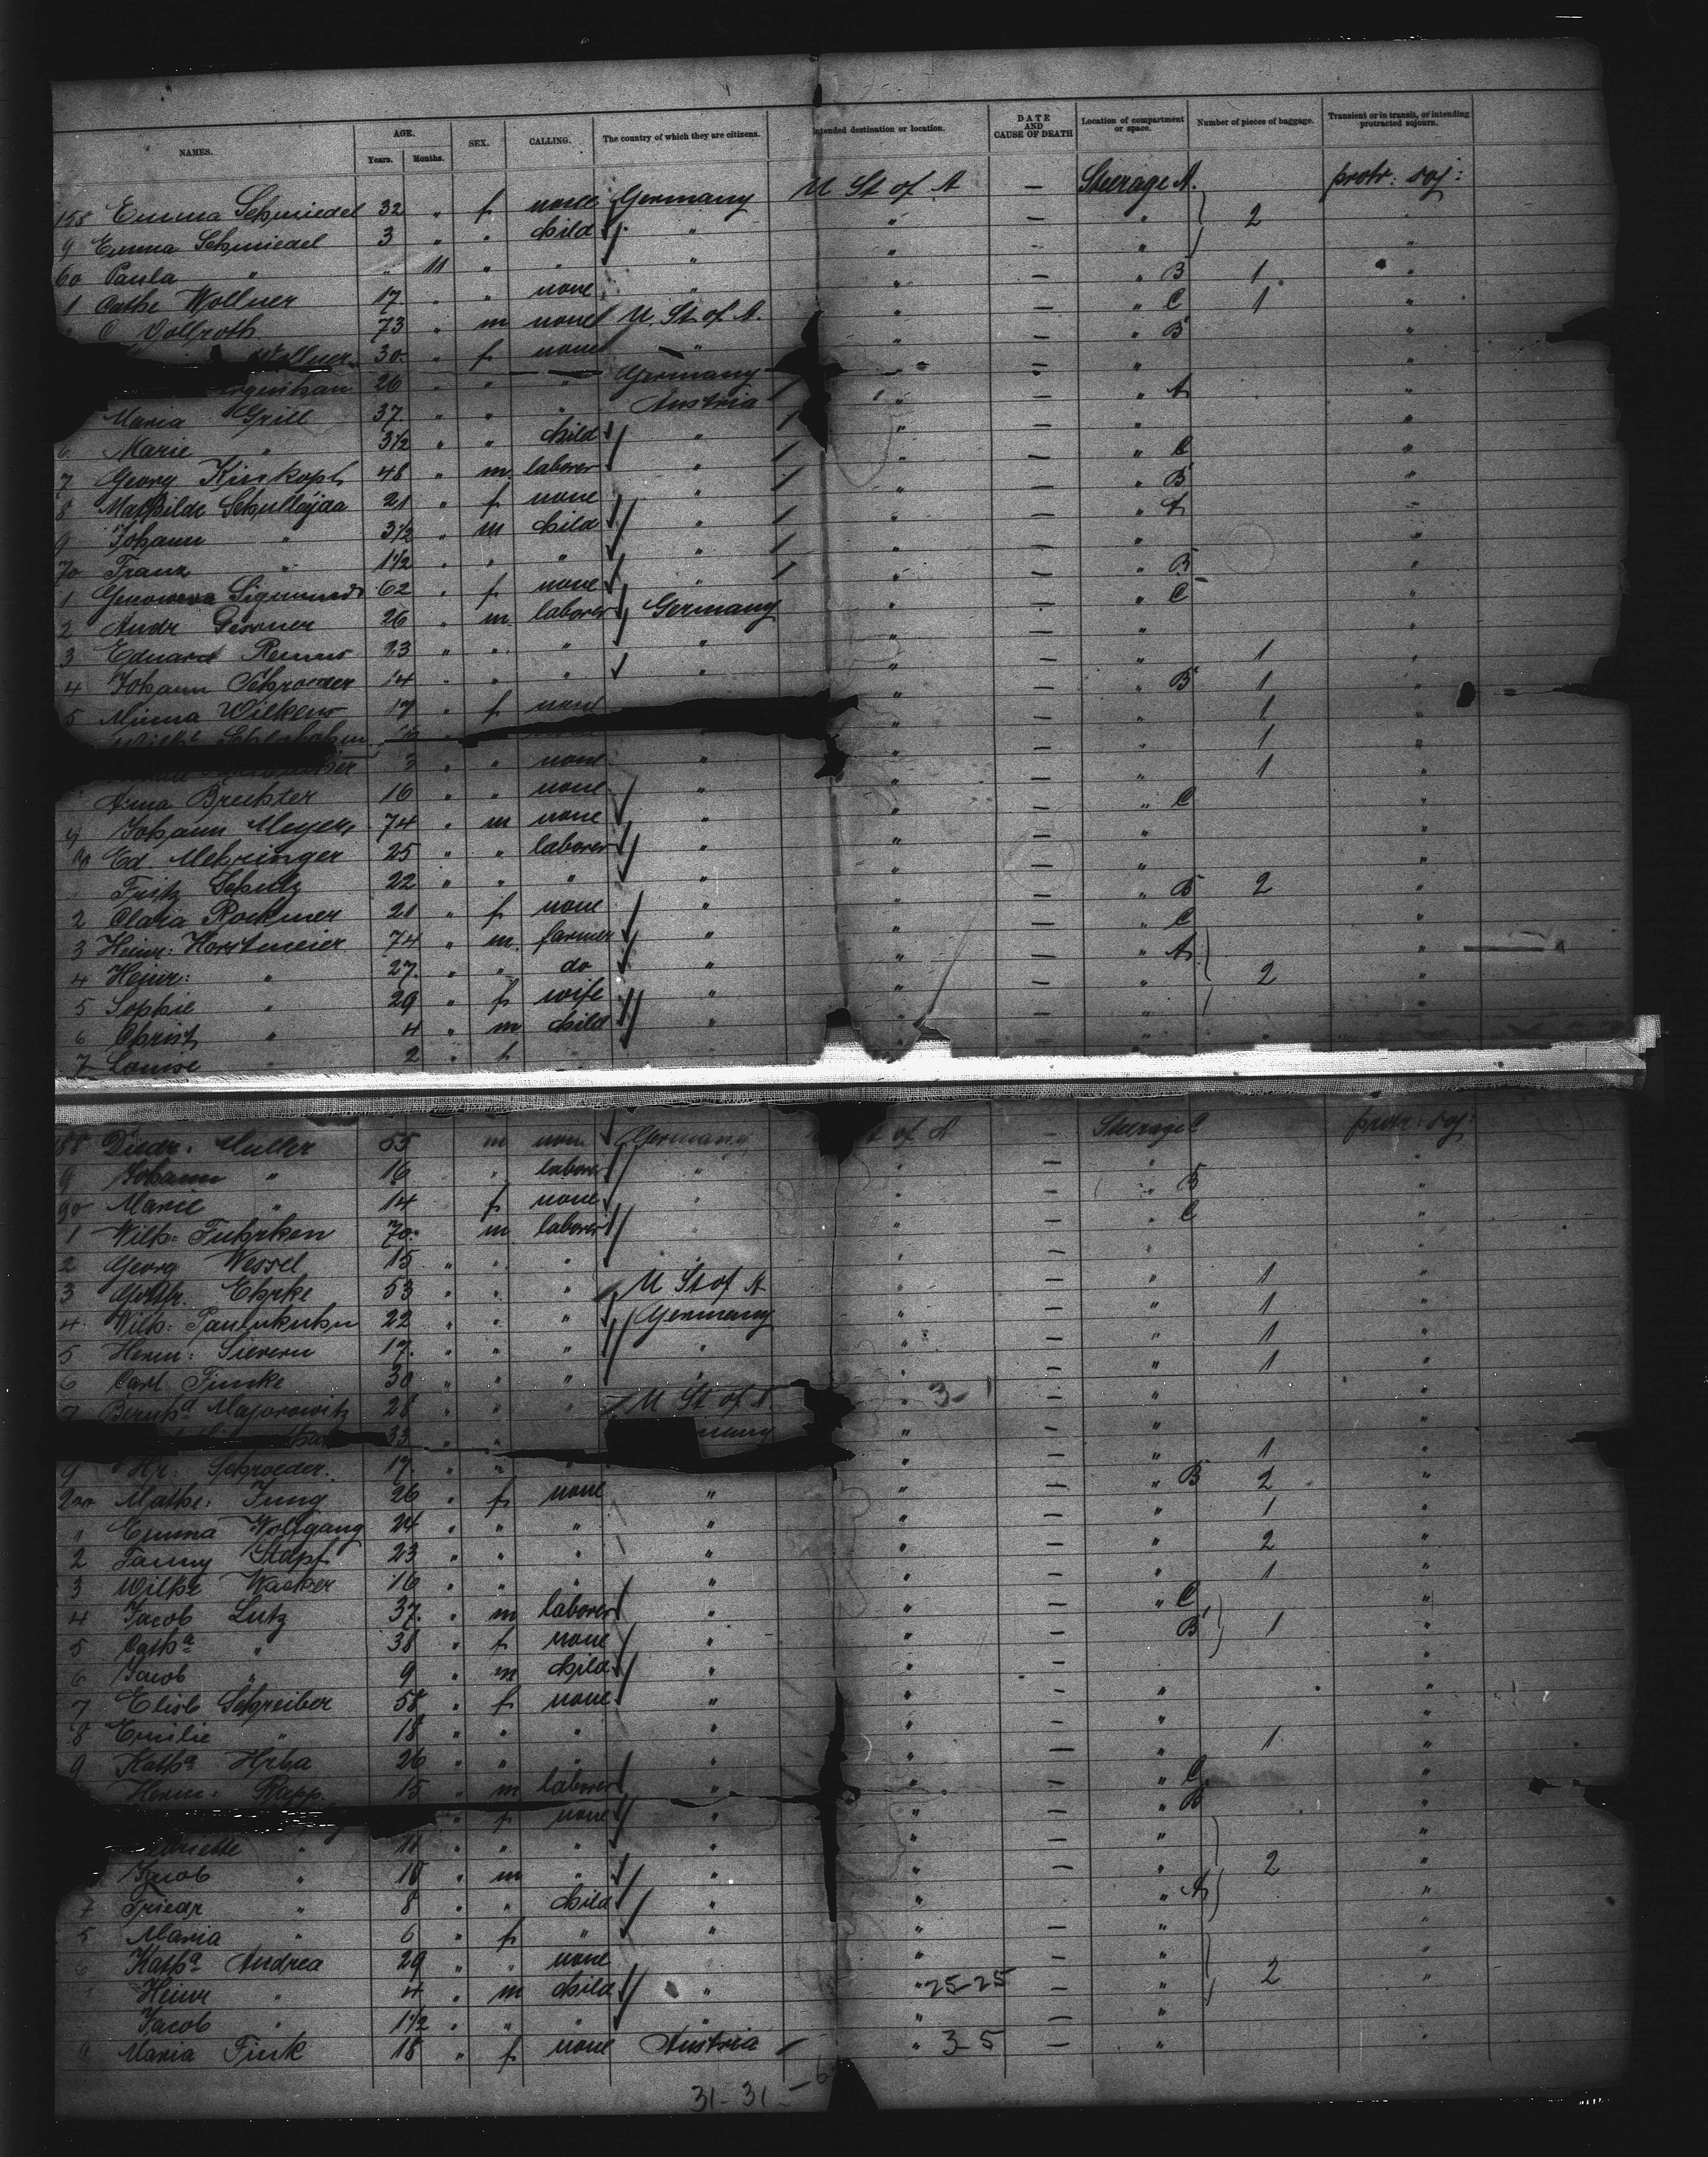 NAMES. AGE. Years. Months. SEX. CALLING. The country of which they are citizens. Intended destination or location. DATE AND CAUSE OF DEATH Location of compartment or space. Number of pieces of baggage. Transient or in transit, or intending protracted sojourn.
158 Emma Schmiedel 32 " f none Germany U St of A — Steerage A. 2 protr: soj:
9 Emma Schmiedel 3 " " child " " — " "
60 Paula " " 11 " " " " — " "
1 Cathe Wollner 17 " " none " " — " B 1 "
C Vollroth 73 " m none U. St. of A. " — " C 1 "
Wollner 30 " f none " " — " B "
26 " " " Germany " — " "
Maria Grill 37 " " " Austria " — " A "
6 Marie " 3½ " " child " " — " "
7 Georg Kirskoph 48 " m laborer " " — " C "
8 Mathilde 21 " f none " " — " B "
9 Johann " 3½ " m child " " — " A "
70 Franz " 1½ " " " " " — " "
1 Genoweva Sigmund 62 " f none " " — " B "
2 Andr 26 " m laborer Germany " — " C "
3 Eduard 23 " " " " " — " "
4 Johann Schroeder 14 " " " " " — " 1 "
5 Minna Wilkens 17 " f none " — " B 1 "
" — " 1 "
" none " " — " 1 "
Anna Brechter 16 " " none " " — " 1 "
9 Johann Meyer 74 " m none " " — " C "
Ed Mehringer 25 " " laborer " " — " "
Fritz Schulz 22 " " " " " — " "
2 Clara Rockmer 21 " f none " " — " B 2 "
3 Heinr: Horstmeier 74 " m farmer " " — " C "
4 Heinr: " 27 " " do " " — " A "
5 Sophie " 29 " f wife " " — " 2 "
6 Christ " 4 " m child " " " "
7 Louise " 2 " f " "
188 Diedr. Muller 55 m none Germany of A — Steerage C protr: soj:
9 Johann " 16 " laborer " " — " "
90 Marie " 14 f none " " — " B "
1 Wilh: Fuhrken 70 m laborer " " — " C "
2 Georg Wessel 15 " " " " " — " "
3 Gottfr. Ehrke 53 " " " U St of A " — " 1 "
4 Wilh: 22 " " " Germany " — " 1 "
5 Herm: Sievern 17 " " " " " — " 1 "
6 Carl Fincke 30 " " " " " — " 1 "
7 Bernhd Majorowitz 28 " " " U St of A. " 3- — " "
33 " " many " — " "
9 Hr: Schroeder. 17 " " " " — " 1 "
200 Mathe: Jung 26 " f none " " — " B 2 "
1 Emma Wolfgang 24 " " " " " — " 1 "
2 Fanny Stapf 23 " " " " " — " 2 "
3 Wilhe Wacker 16 " " " " " — " 1 "
4 Jacob Lutz 37 " m laborer " " — " C "
5 Catha " 38 " f none " " — B 1 "
6 Jacob " 9 " m child " " — "
7 Elisb Schreiber 58 " f none " " — " "
8 Emilie " 18 " " " " " — " "
9 Katha Hrba 26 " " " " " — " 1 "
Herm: Rapp. 15 " m laborer " " — " C "
" f none " " — " B "
" 11 " " " " " — " "
Jacob " 10 " m " " " — " 2 "
Friedr " 8 " " child " " — " A "
5 Maria " 6 " f " " " — " "
6 Katha Andrea 29 " " none " — " "
Heinr " 4 " m child " " 25-25 — " 2 "
Jacob " 1½ " " " " " — " "
9 Maria Fink 18 " f none Austria " 3-5 — "
31-31-6